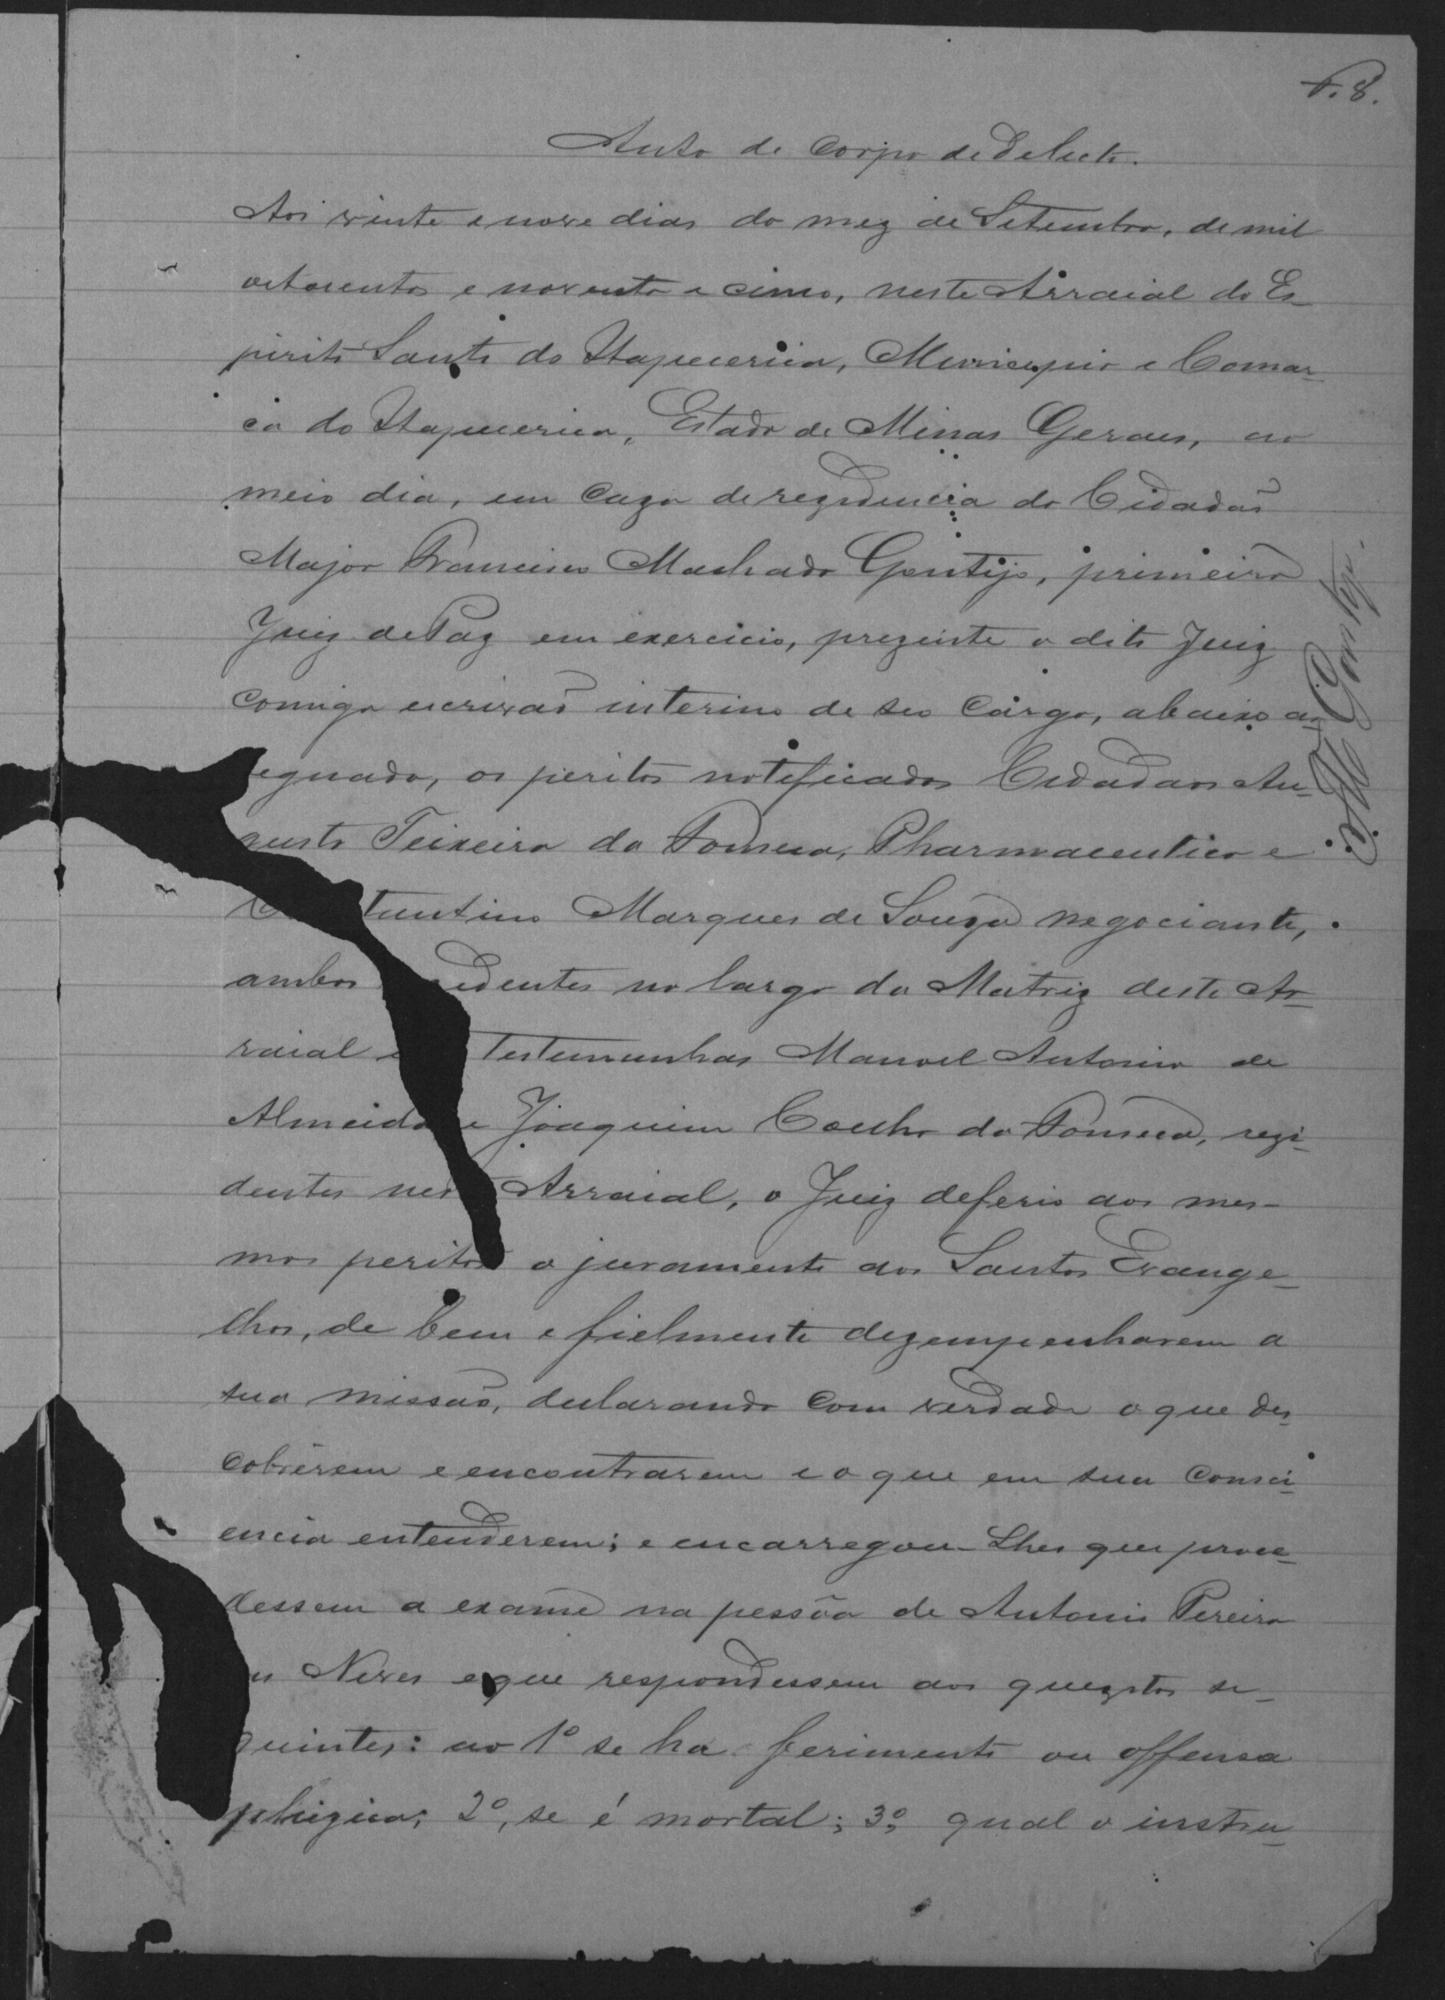 f. 8.
Auto de corpo de Delicto.
Aos vinte e nove dias do mez de Setembro, de mil
oitocentos e noventa e cinco, neste Arraial do Es-
pirito Santo do Itapecerica, Municipio e Comar-
ca do Itapecerica, Estado de Minas Geraes, ao
meio dia, em caza de rezidencia do Cidadão
Major Francisco Machado Gontijo, primeiro
Juiz de Paz em exercicio, prezente o dito Juiz
comigo escrivão interino de seo cargo, abaixo as-
egnado, os peritos notificados Cidadãos Au-
gusto Teixeira da Fonseca, Pharmaceutico e
tantino Marques de Souza negociante,
ambos edentes no largo da Matriz deste Ar-
raial e testemunhas Manoel Antonio de
Almeida e Joaquim Coelho da Fonseca, rezi-
dentes nes Arraial, o Juiz deferio aos mes-
mos peritos o juramento aos Santos Evange-
lhos, de bem e fielmente dezempenharem a
sua missão, declarando com verdade o que des-
cobrirem e encontrarem e o que em sua consci-
encia entenderem; e encarregou-lhes que proce-
dessem a exame na pessôa de Antonio Pereira
as Neves e que respondessem aos quezitos se-
guintes: ao 1º se ha ferimento ou offensa
phizica; 2º, se é mortal; 3º, qual o instru-
Gontijo.